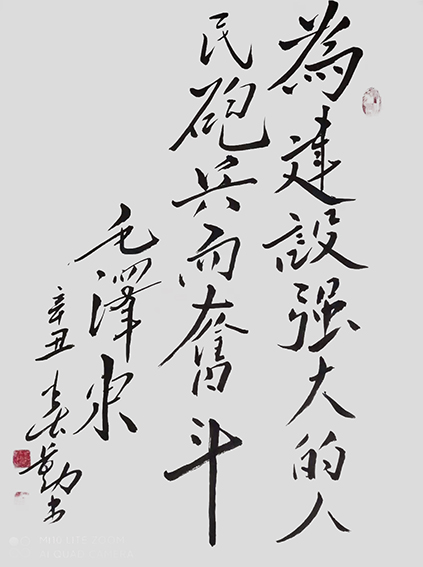 為建設强大的人
民砲兵而奮斗
毛澤东
辛丑 春勤书